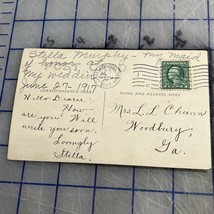 Stella Murphy - my maid
of honor at
my wedding
June 27-1917
CORRESPONDENCE HERE
NAME AND ADDRESS HERE
Hello Dearie:
How
are you? Will
write you soon.
Lovingly
Stella.
Mrs. L. L. Chunn
Woodbury,
Ga.